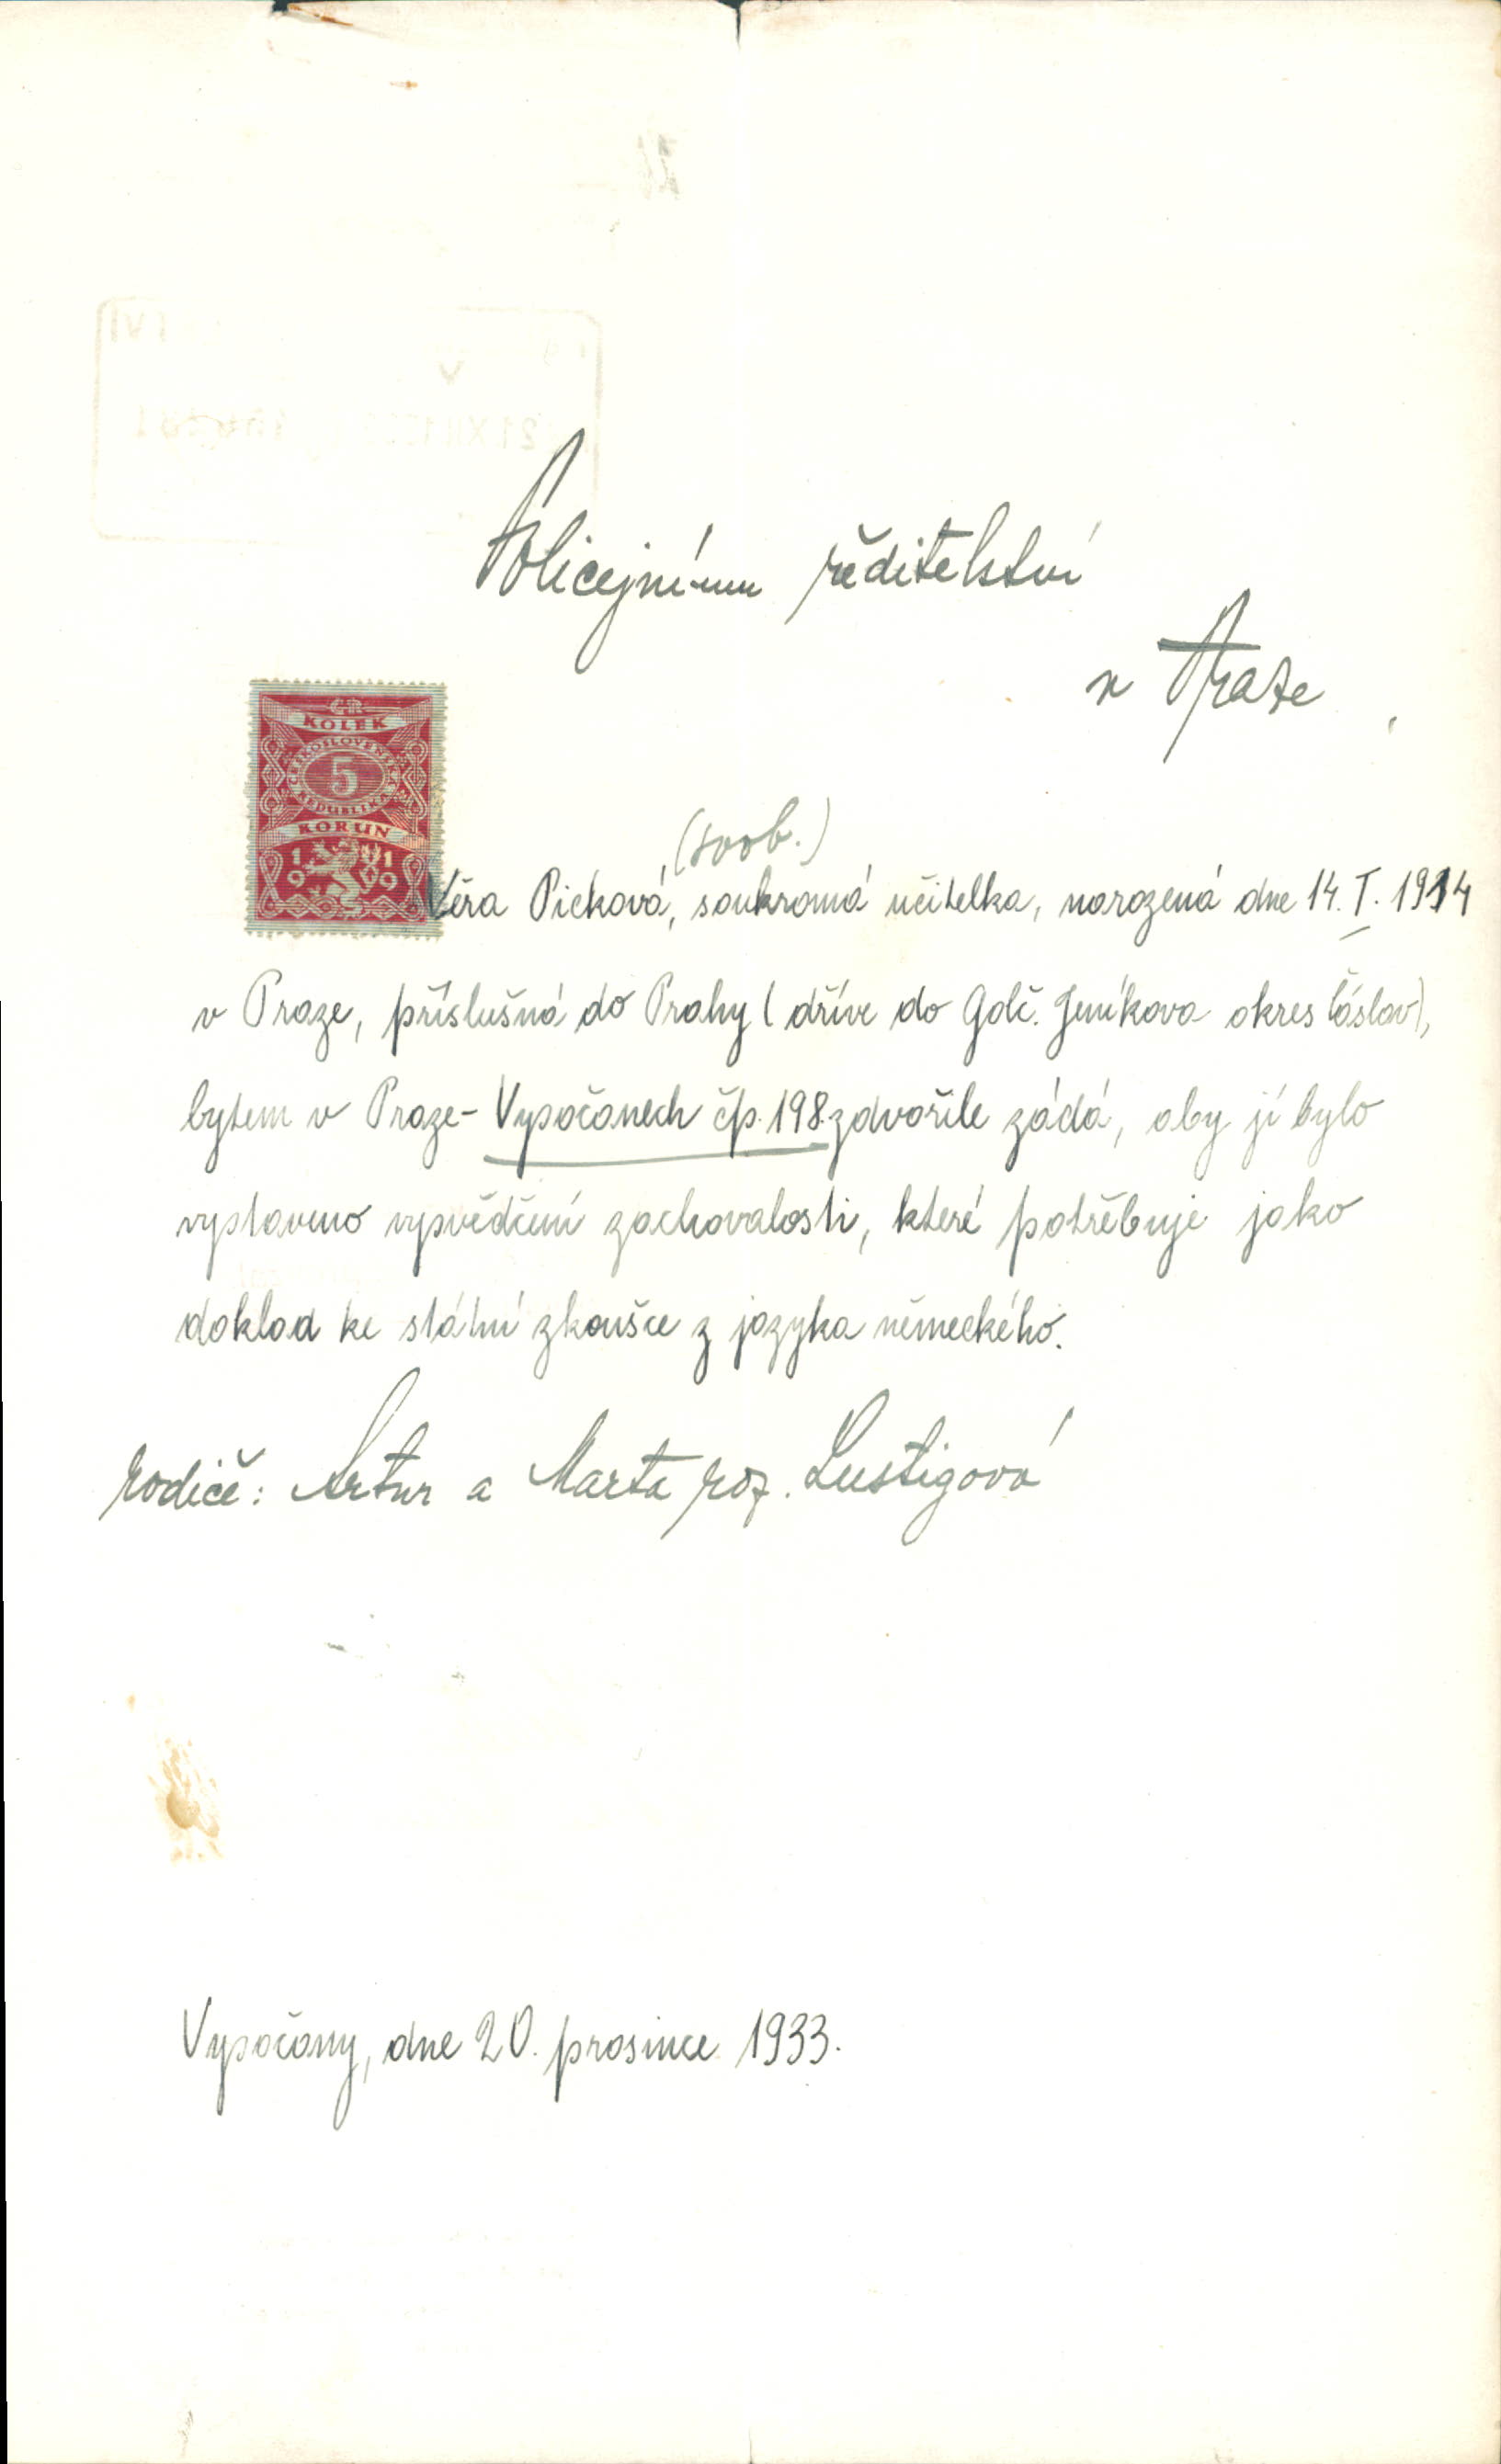 Policejnímu ředitelství
v Praze
KOLEK
ČESKOSLOVENSKÁ
5
REPUBLIKA
KORUN
1919
(svob.)
Věra Picková, soukromá učitelka, narozená dne 14. I. 1914
v Praze, příslušná do Prahy (dříve do Golč. Jeníkova okres Čáslav),
bytem v Praze - Vysočanech čp. 198. zdvořile žádá, aby jí bylo
vystaveno vysvědčení zachovalosti, které potřebuje jako
doklad ke státní zkoušce z jazyka německého.
rodiče: Artur a Marta roz. Lustigová
Vysočany, dne 20. prosince 1933.